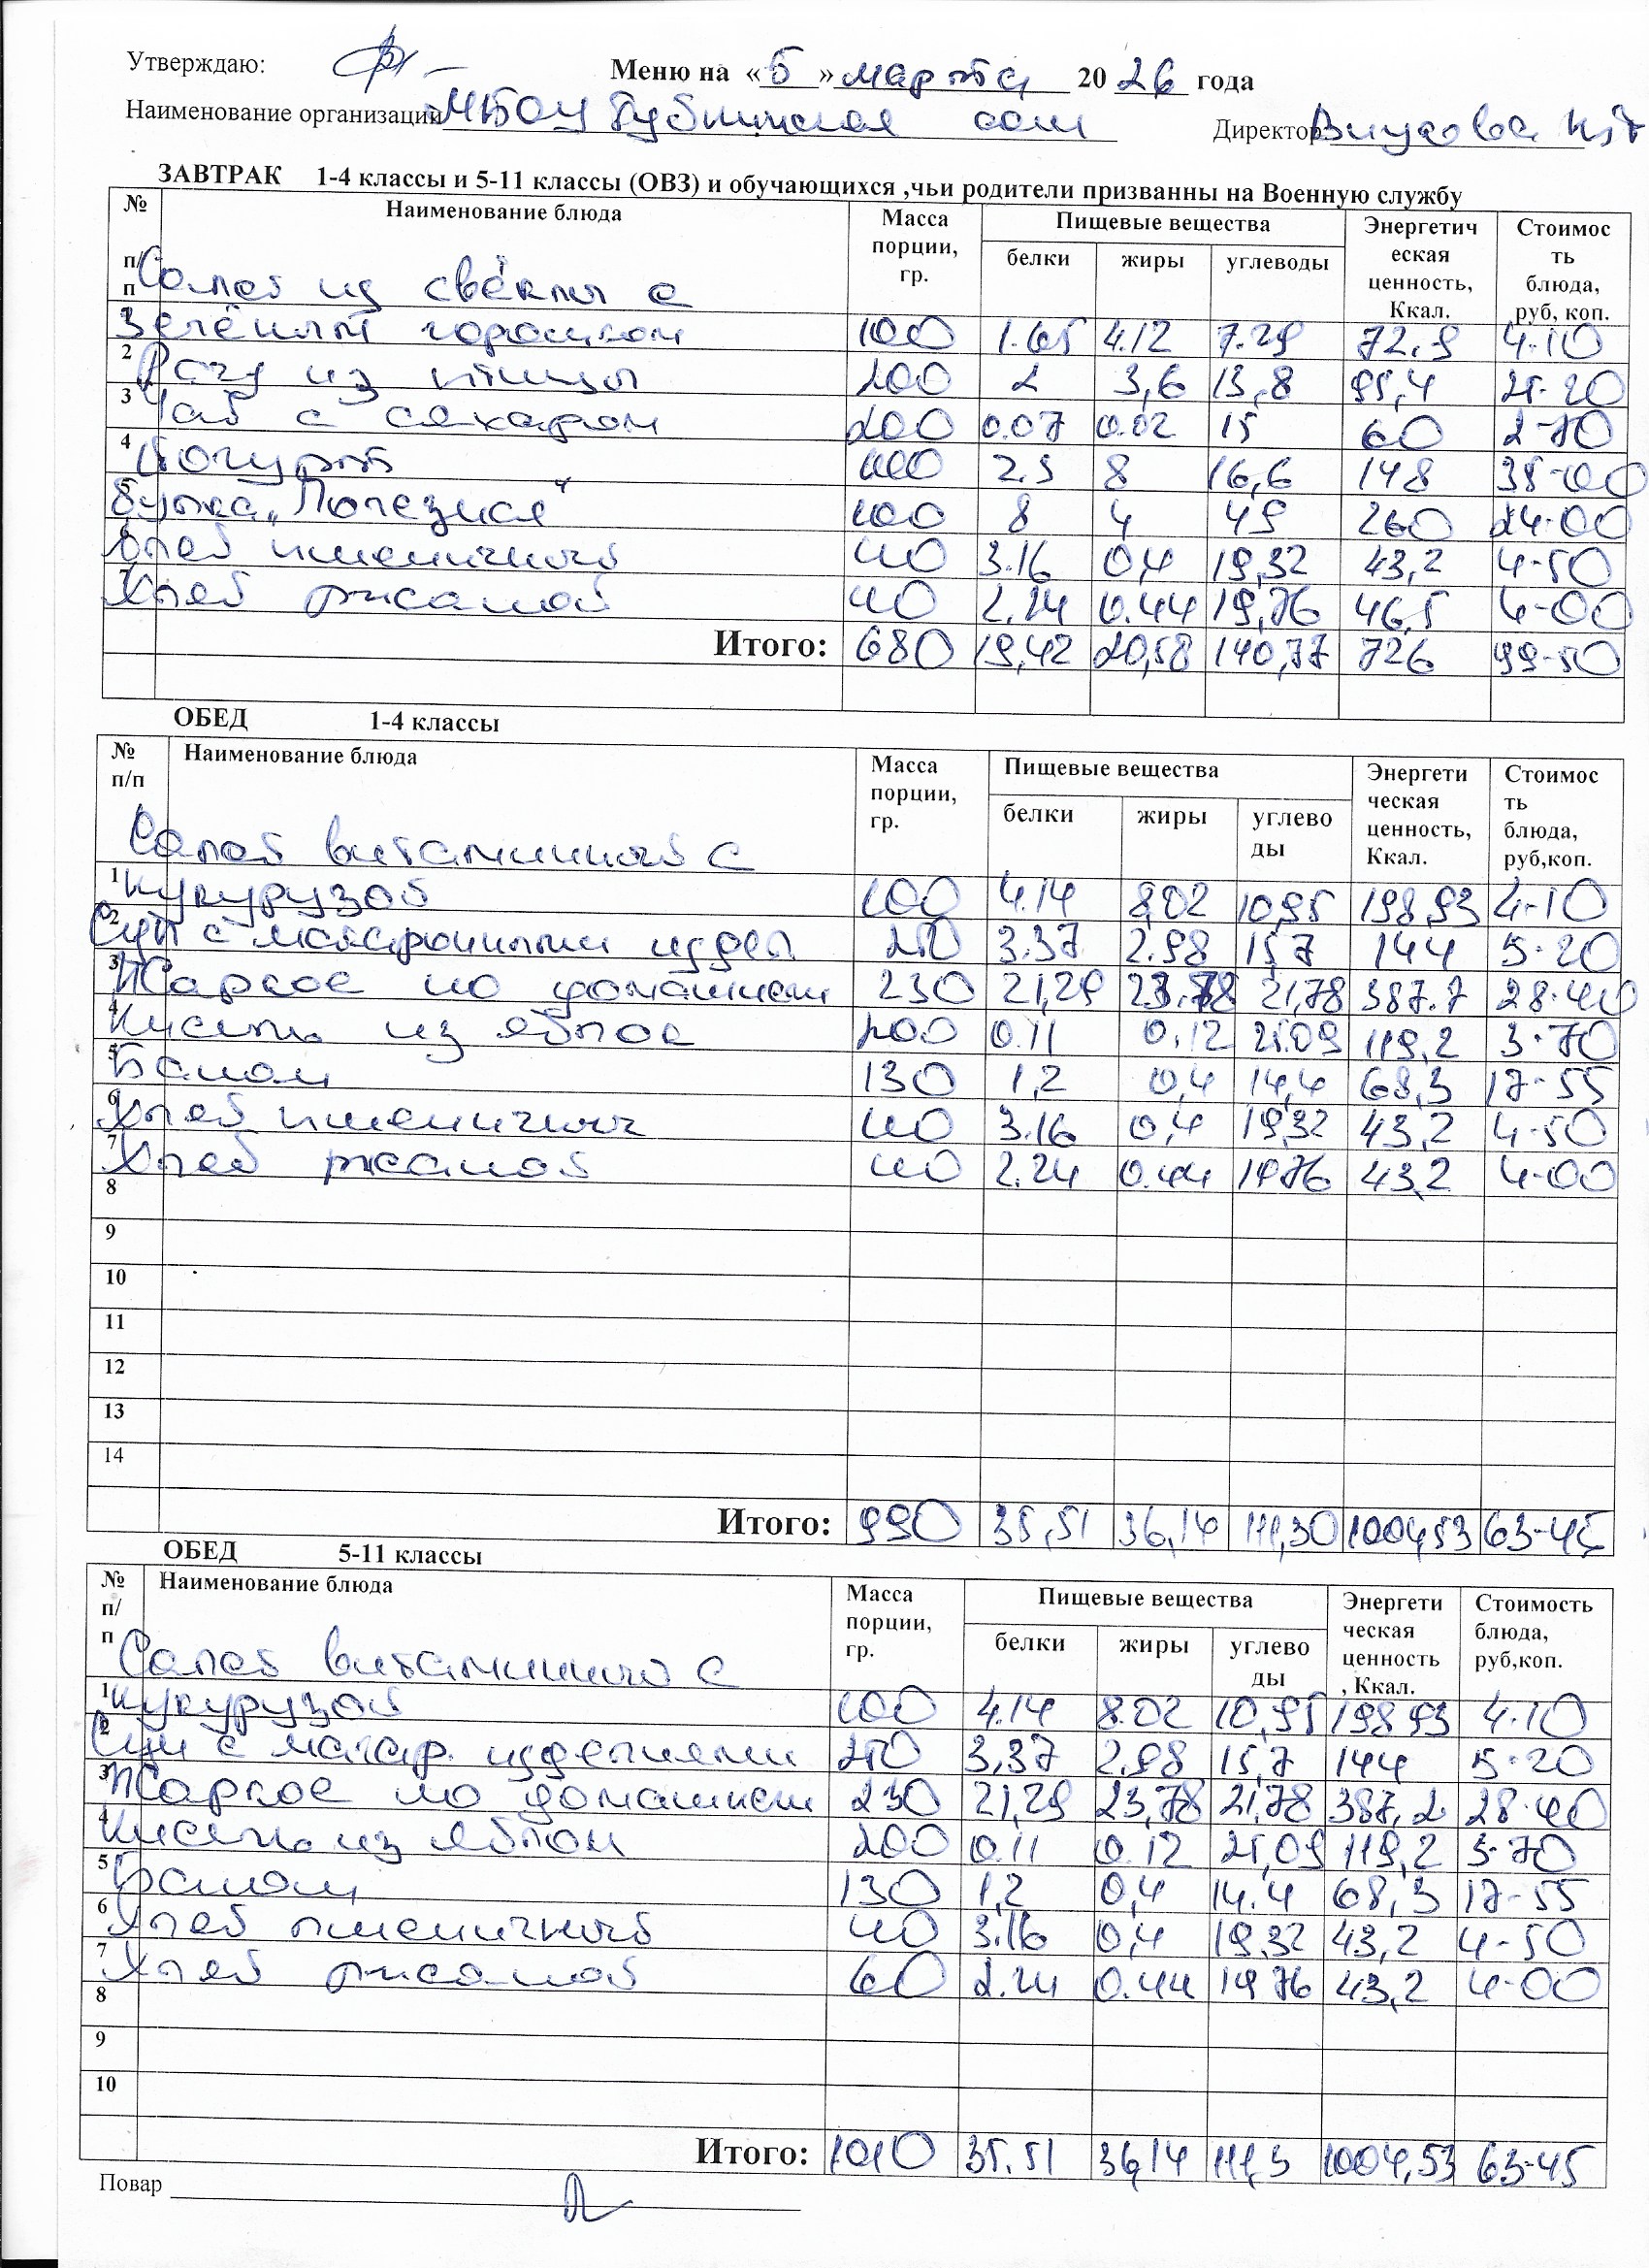 Утверждаю:
Меню на «5» марта 2026 года
Наименование организации МБОУ Губинская сош Директор
ЗАВТРАК 1-4 классы и 5-11 классы (ОВЗ) и обучающихся ,чьи родители призванны на Военную службу
№ п/п Наименование блюда Масса порции, гр. Пищевые вещества Энергетическая ценность, Ккал. Стоимость блюда, руб, коп.
белки жиры углеводы
Салат из свёклы с
1 зелёным горошком 100 1.65 4.12 7.29 72.9 4-10
2 Рагу из птицы 200 2 3,6 13,8 95,4 21-20
3 Чай с сахаром 200 0.07 0.02 15 60 2-70
4 Йогурт 100 2.3 8 16,6 148 39-00
5 Булка „Полезная" 100 8 4 49 260 24-00
6 Хлеб пшеничный 40 3.16 0,4 19,32 43,2 4-50
7 Хлеб ржаной 40 2.24 0.44 19,76 46,5 4-00
Итого: 680 19,42 20,58 140,77 726 99-50
ОБЕД 1-4 классы
№ п/п Наименование блюда Масса порции, гр. Пищевые вещества Энергетическая ценность, Ккал. Стоимость блюда, руб,коп.
белки жиры углеводы
Салат витаминный с
1 кукурузой 100 4.14 8,02 10,95 198,93 4-10
2 Суп с макаронными издел 250 3.37 2.98 15,7 144 5-20
3 Жаркое по домашнем 230 21,29 23.78 21,78 387.7 28-40
4 Кисель из яблок 200 0.11 0,12 21.09 119,2 3-70
5 Банан 130 1,2 0,4 14,4 68,3 17-55
6 Хлеб пшеничный 40 3.16 0,4 19,32 43,2 4-50
7 Хлеб ржаной 40 2.24 0.44 19,76 43,2 4-00
8
9
10
11
12
13
14
Итого: 990 35,51 36,14 111,30 1004,53 63-45
ОБЕД 5-11 классы
№ п/п Наименование блюда Масса порции, гр. Пищевые вещества Энергетическая ценность, Ккал. Стоимость блюда, руб,коп.
белки жиры углеводы
Салат витаминный с
1 кукурузой 100 4.14 8.02 10,95 198,93 4-10
2 Суп с макар. изделиями 250 3,37 2,98 15,7 144 5-20
3 Жаркое по домашнем 230 21,29 23,78 21,78 387,2 28-40
4 Кисель из яблок 200 0.11 0.12 21,09 119,2 3-70
5 Банан 130 1,2 0,4 14.4 68,3 17-55
6 Хлеб пшеничный 40 3.16 0,4 19.32 43,2 4-50
7 Хлеб ржаной 60 2.24 0.44 19,76 43,2 4-00
8
9
10
Итого: 1010 35.51 36,14 111,3 1004,53 63-45
Повар